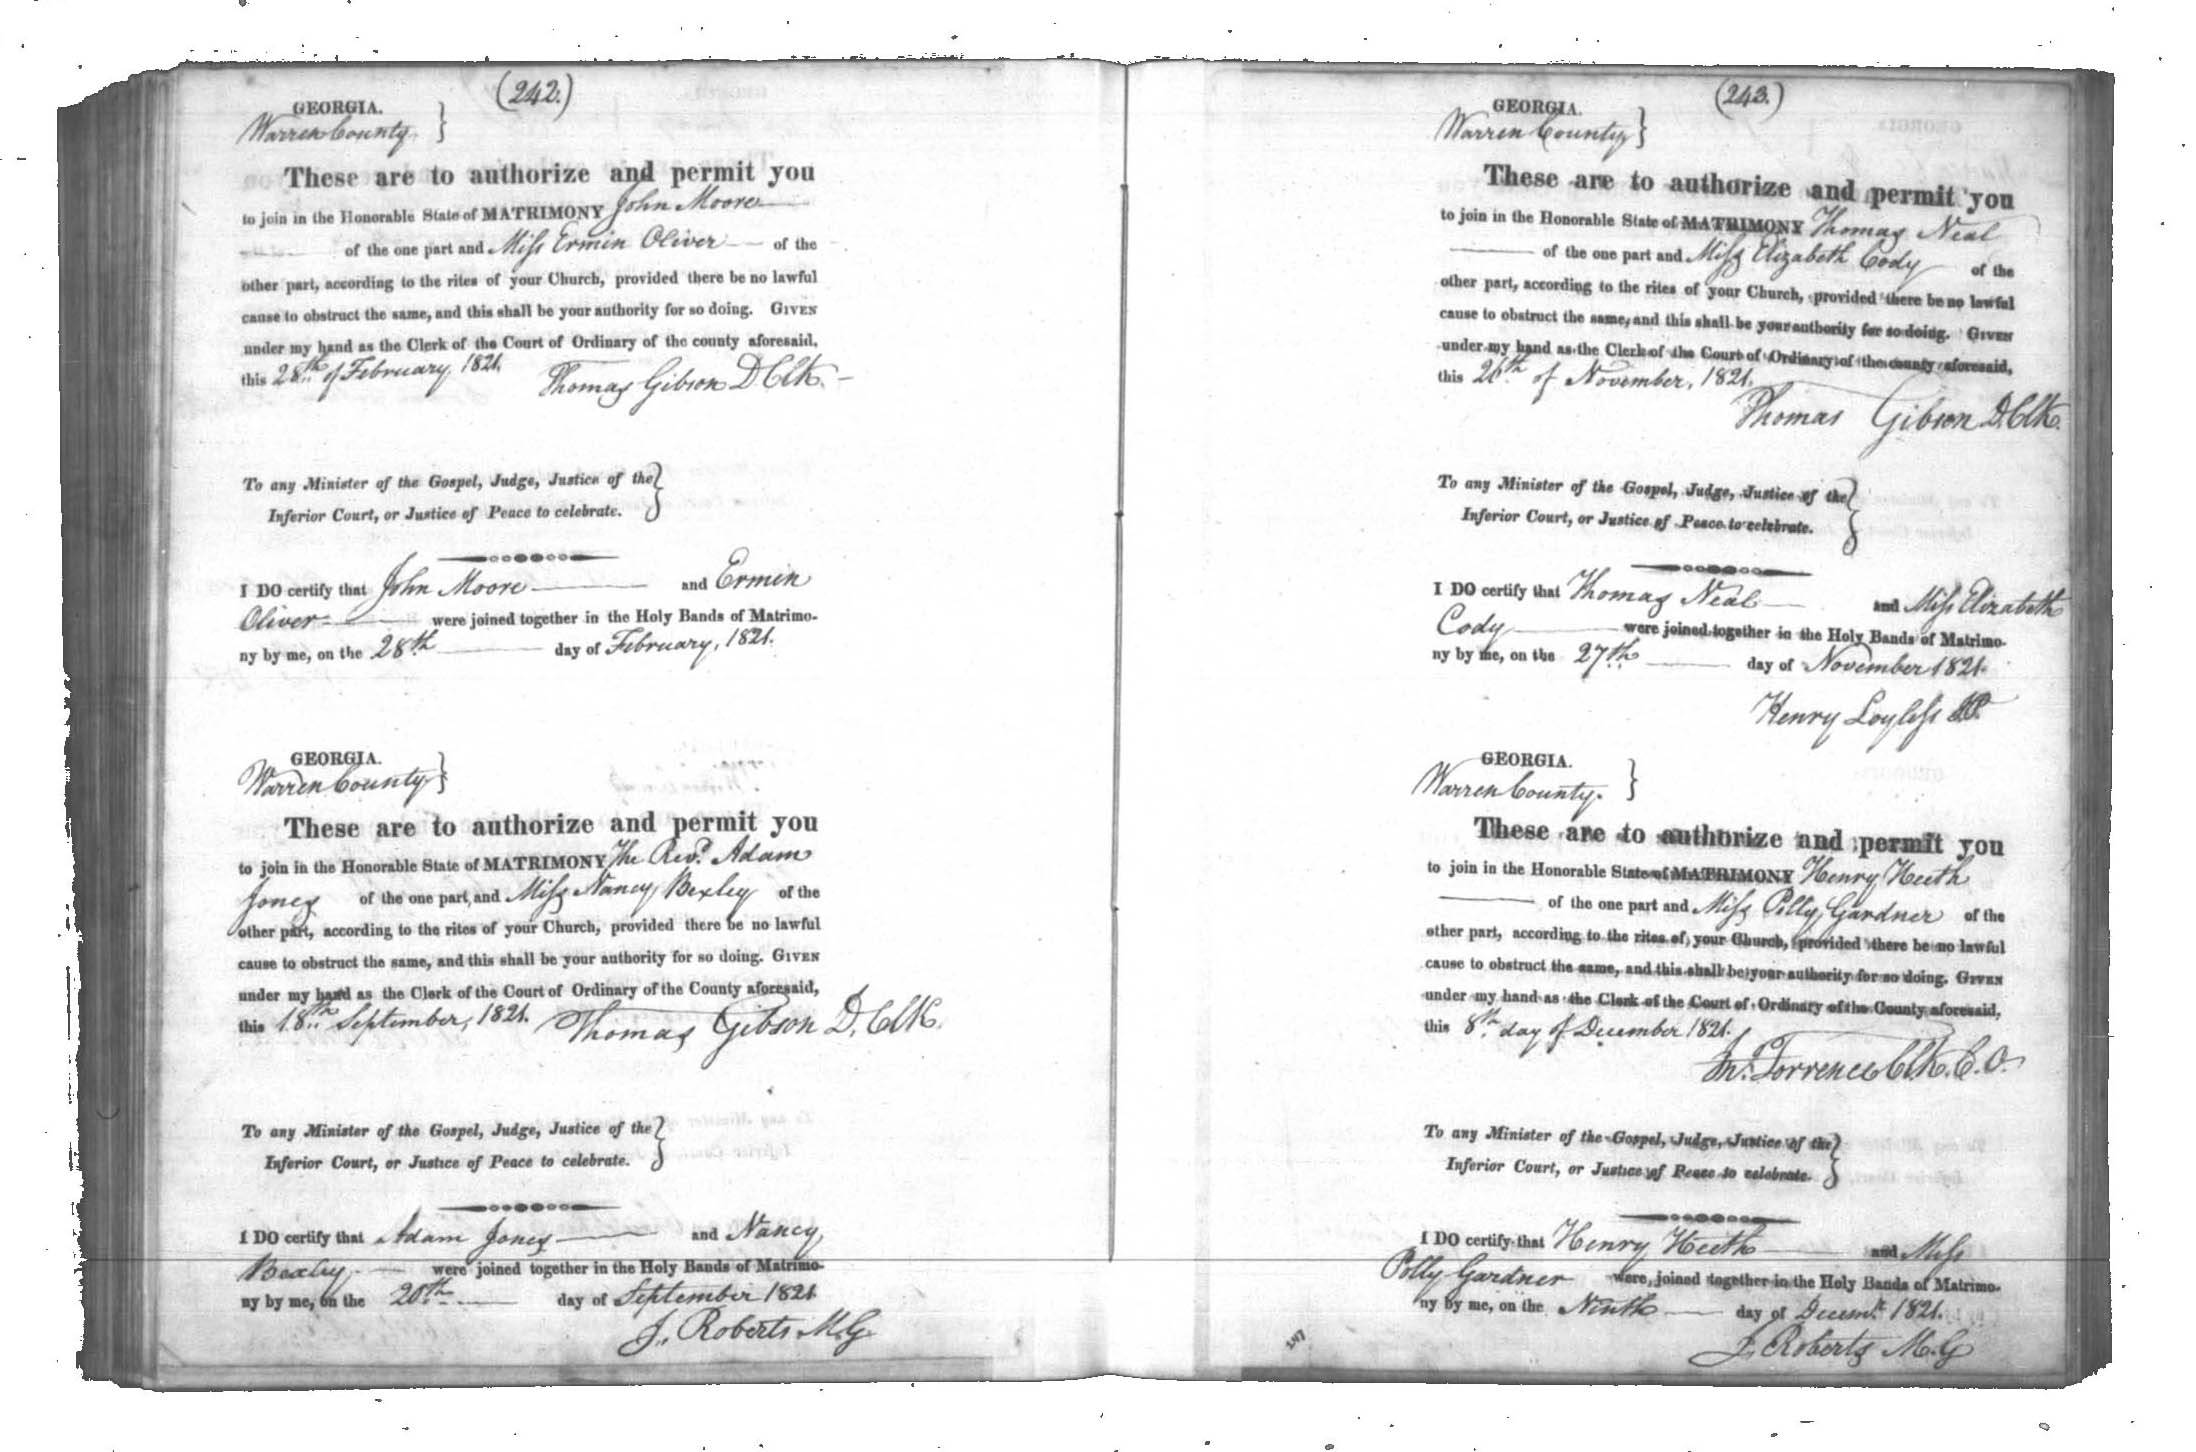 (242.)
GEORGIA.
Warren County }
These are to authorize and permit you
to join in the Honorable State of MATRIMONY John Moore
of the one part and Miss Ermin Oliver of the
other part, according to the rites of your Church, provided there be no lawful
cause to obstruct the same, and this shall be your authority for so doing. GIVEN
under my hand as the Clerk of the Court of Ordinary of the county aforesaid,
this 28th of February, 1821. Thomas Gibson D. Clk.
To any Minister of the Gospel, Judge, Justice of the }
Inferior Court, or Justice of Peace to celebrate.
I DO certify that John Moore and Ermin
Oliver were joined together in the Holy Bands of Matrimo-
ny by me, on the 28th day of February, 1821.
GEORGIA.
Warren County }
These are to authorize and permit you
to join in the Honorable State of MATRIMONY The Revd. Adam
Jones of the one part, and Miss Nancy Bexley of the
other part, according to the rites of your Church, provided there be no lawful
cause to obstruct the same, and this shall be your authority for so doing. GIVEN
under my hand as the Clerk of the Court of Ordinary of the County aforesaid,
this 18th September, 1821. Thomas Gibson D. Clk.
To any Minister of the Gospel, Judge, Justice of the }
Inferior Court, or Justice of Peace to celebrate.
I DO certify that Adam Jones and Nancy
Bexley were joined together in the Holy Bands of Matrimo-
ny by me, on the 20th day of September 1821
J. Roberts M.G.
(243.)
GEORGIA.
Warren County }
These are to authorize and permit you
to join in the Honorable State of MATRIMONY Thomas Neal
of the one part and Miss Elizabeth Cody of the
other part, according to the rites of your Church, provided there be no lawful
cause to obstruct the same, and this shall be your authority for so doing. GIVEN
under my hand as the Clerk of the Court of Ordinary of the county aforesaid,
this 26th of November, 1821.
Thomas Gibson D. Clk.
To any Minister of the Gospel, Judge, Justice of the }
Inferior Court, or Justice of Peace to celebrate.
I DO certify that Thomas Neal and Miss Elizabeth
Cody were joined together in the Holy Bands of Matrimo-
ny by me, on the 27th day of November 1821.
Henry Loyless J.P.
GEORGIA.
Warren County. }
These are to authorize and permit you
to join in the Honorable State of MATRIMONY Henry Heeth
of the one part and Miss Polly Gardner of the
other part, according to the rites of your Church, provided there be no lawful
cause to obstruct the same, and this shall be your authority for so doing. GIVEN
under my hand as the Clerk of the Court of Ordinary of the County aforesaid,
this 8th day of December 1821.
Jno. Torrence Clk. C. O.
To any Minister of the Gospel, Judge, Justice of the }
Inferior Court, or Justice of Peace to celebrate.
I DO certify that Henry Heeth and Miss
Polly Gardner were joined together in the Holy Bands of Matrimo-
ny by me, on the Ninth day of Decemr. 1821.
J. Roberts M.G